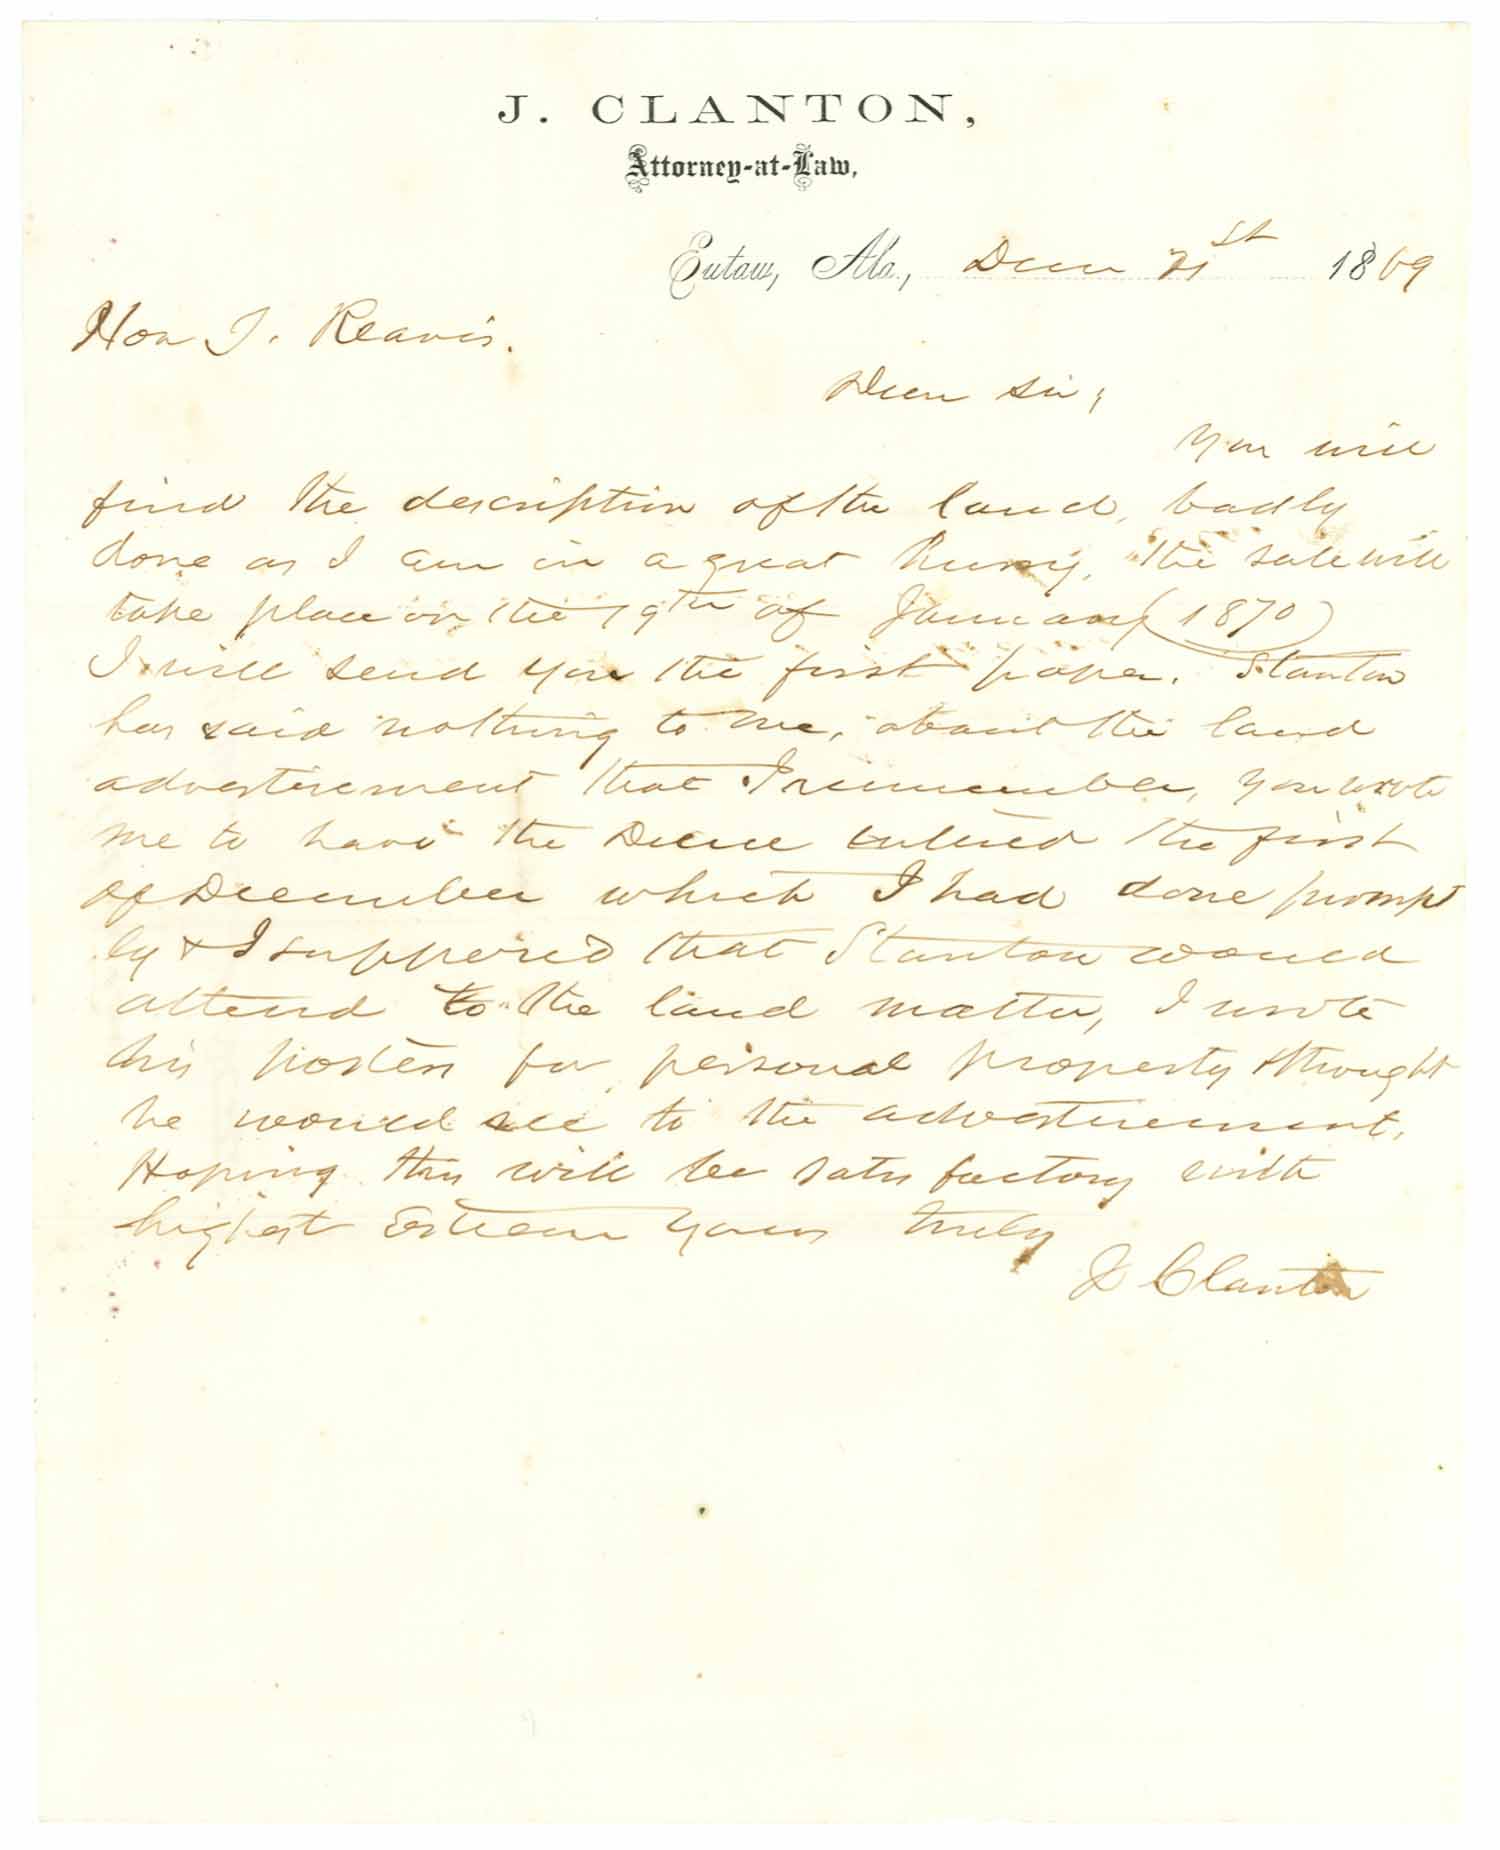 J. CLANTON,
Attorney-at-Law,
Eutaw, Ala., Decr 21st 1869
Hon T. Reavis.
Dear Sir;
You will
find the description of the land, badly
done as I am in a great hurry, the sale will
take place on the 19th of January (1870)
I will send you the first paper. Stanton
has said nothing to me, about the land
advertisement that I remember, You wrote
me to have the Decree entered the first
of December which I had done prompt
ly & I supposed that Stanton would
attend to the land matter, I wrote
his posters for personal property & thought
he would see to the advertisement.
Hoping this will be satisfactory with
highest Esteem Yours truly
J Clanton